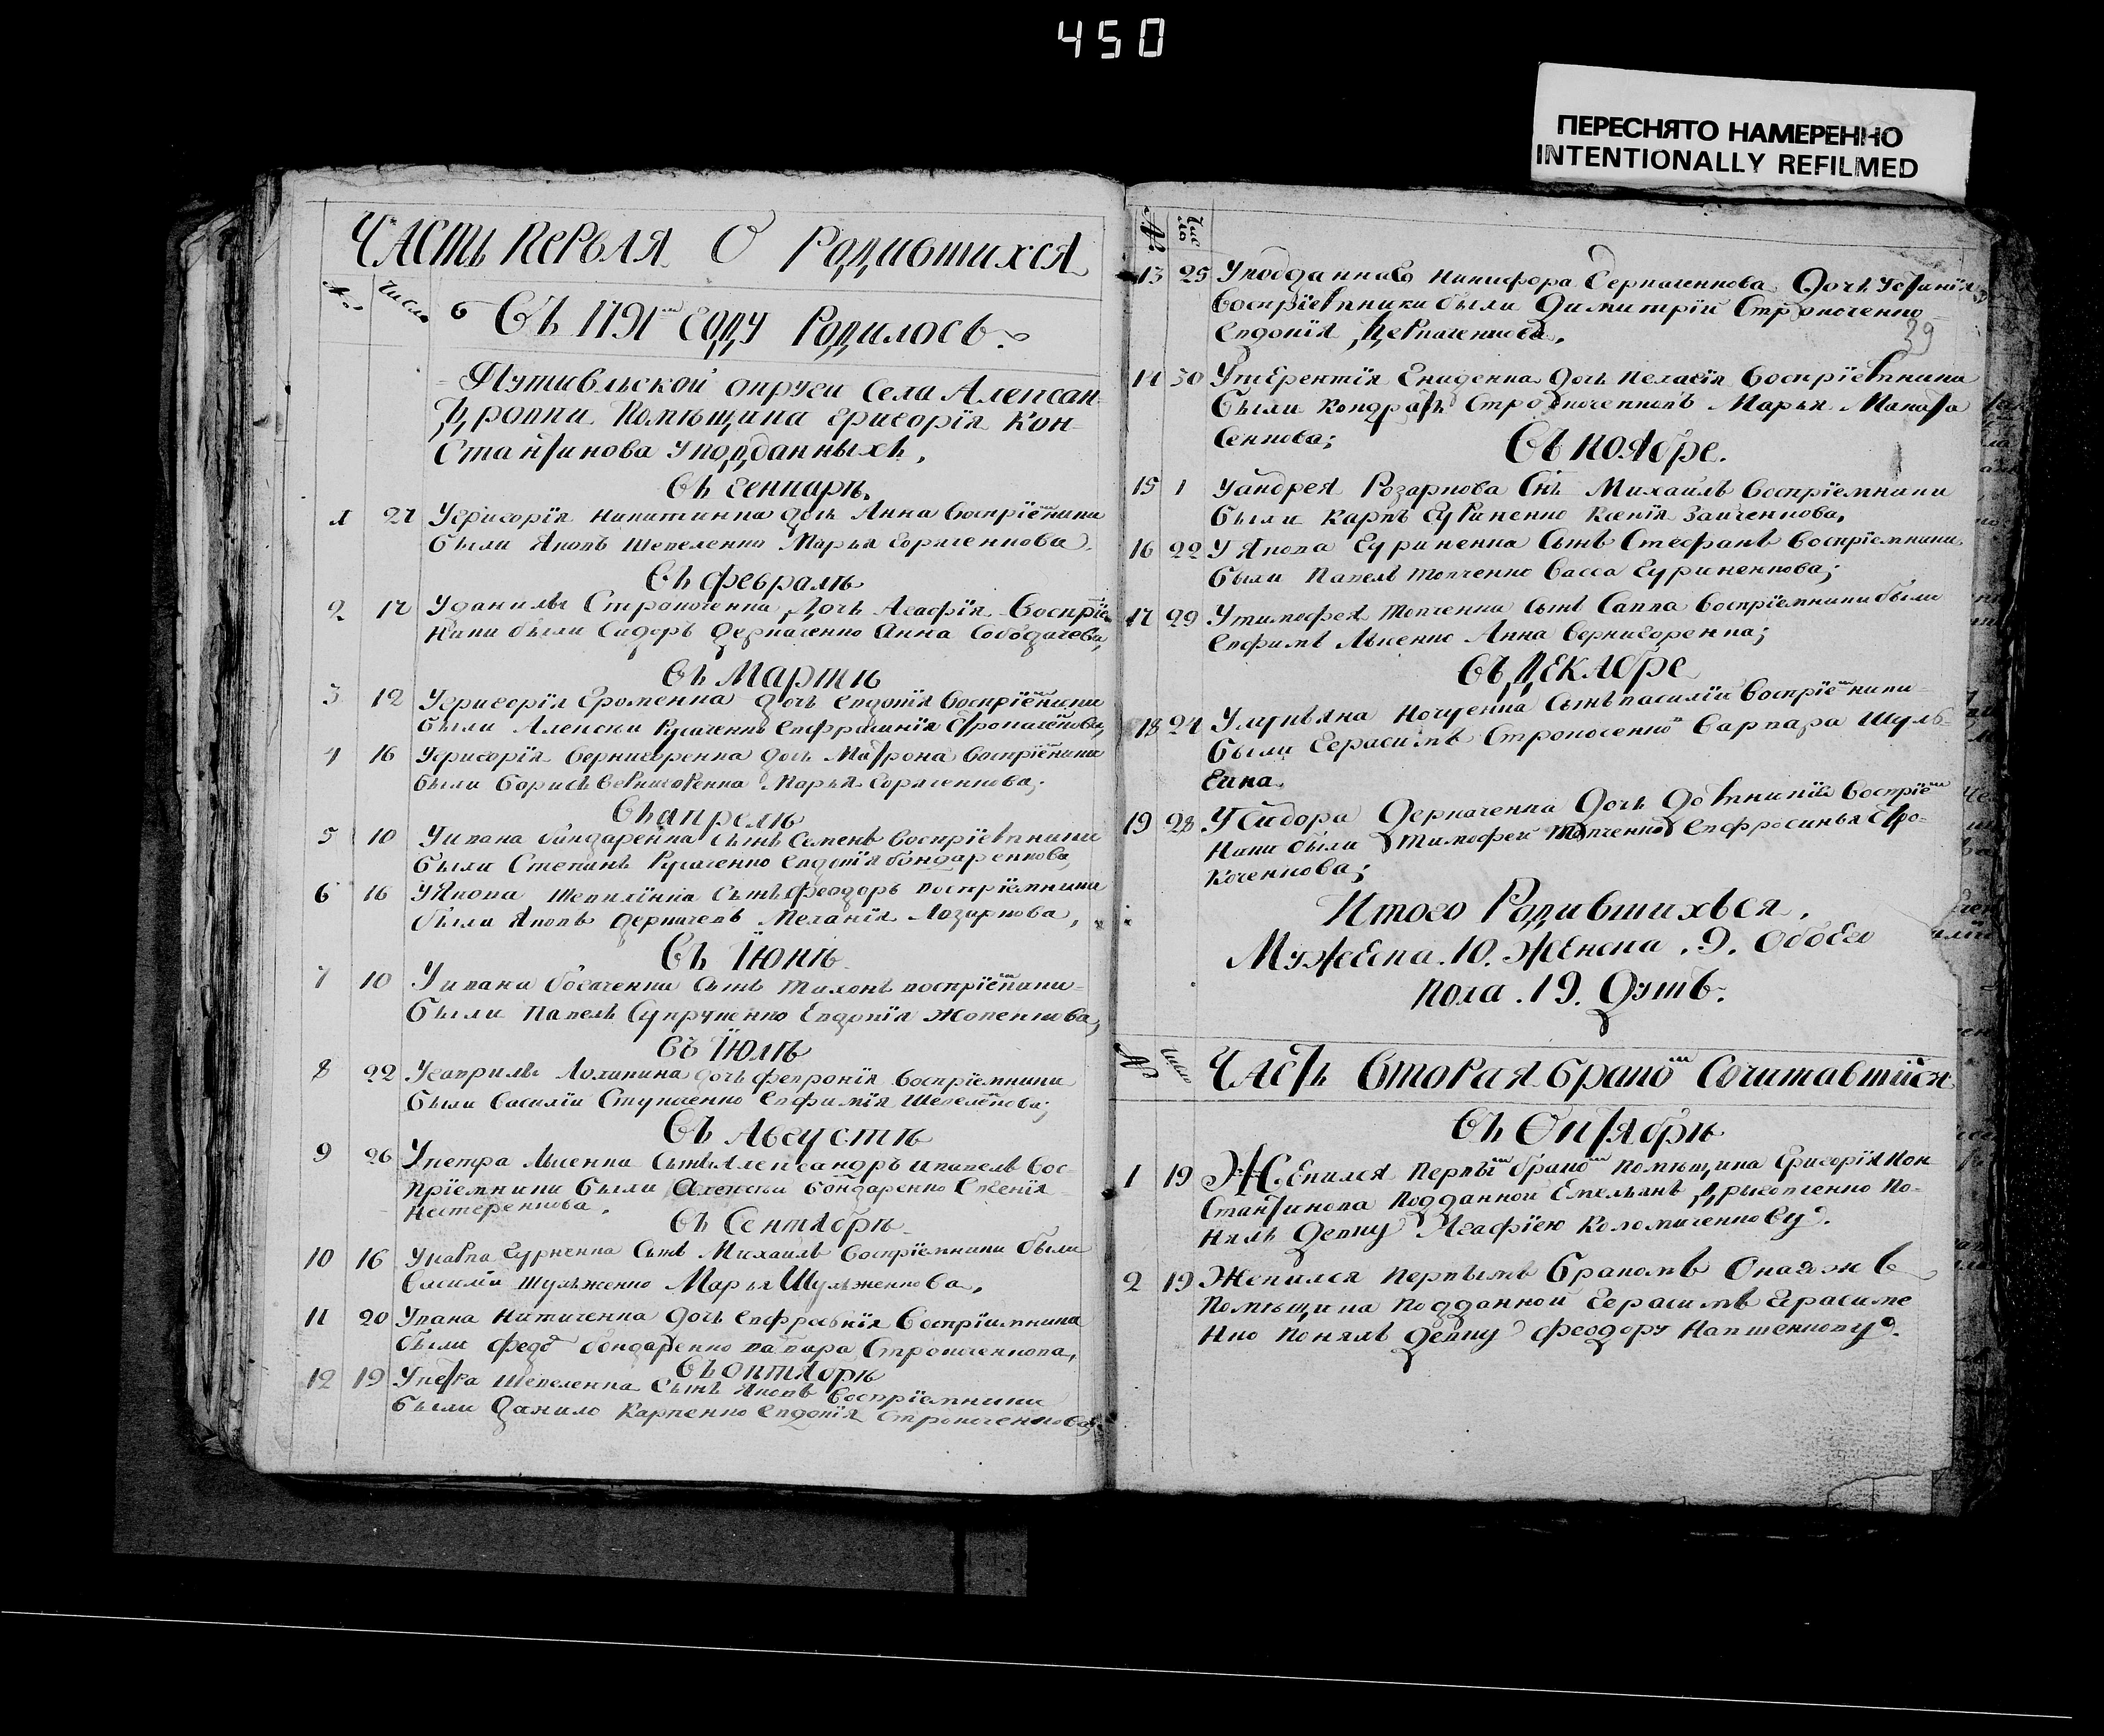 450
ПЕРЕСНЯТО НАМЕРЕННО
INTENTIONALLY REFILMED
Часть первая О Родившихся
№ Число
Въ 1791м году Родилось
Путивльской округи села Алексан
дровки помѣщика григорія Кон
стантинова уподданныхъ,
Въ генварѣ,
1 27 Угригорія никитинка дочь Анна воспріемники
были яковъ шепеленко Марья горяченкова.
Въ февралѣ
2 17 Уданилы Строкоченка дочь Агафія Воспріем
ники были Сидоръ деркаченко Анна
Въ Мартѣ
3 12 Угригорія Еременка дочь евдокія воспріемники
были Алексеи Русаченко евфросинія
4 16 Угригорія Вернигоренка дочь Матрона воспріемники
были борисъ вернигоренка Марья горяченкова;
Въ апрелѣ
5 10 Уивана бондаренка сынъ Семенъ воспріемники
были Степанъ Русаченко евдокія бондаренкова,
6 16 УЯкова сынъ феодоръ воспріемники
были Яковъ Меланія Лозаркова,
Въ Iюнѣ
7 10 Уивана богаченка сынъ тихонъ воспріемники
были Павелъ Супруненко Евдокія
Въ Iюлѣ
8 22 Угаврилы дочь февронія воспріемники
были василіи Ступаченко евфимія шепеленкова;
Въ Августѣ
9 26 Упетра лысенка сынъ Александръ и павелъ вос
пріемники были Алексеи бондаренко
нестеренкова.
Въ Сентябрѣ
10 16 Упавла сынъ Михаилъ воспріемники были
василіи шульженко Марья Шульженкова,
11 20 Уивана никитченка дочь воспріемника
были бондаренко Строкоченкова,
Въ октябрѣ
12 19 Упетра шепеленка сынъ яковъ воспріемники
были данило Карпенко евдокія строкоченкова
№ Число
13 25 Уподданнаго никифора деркаченкова дочь
воспріемники были димитріи Строкоченко
евдокія деркаченкова,
39
14 30 Утерентія дочь пелагія воспріемники
были кондратъ Марья
сенкова;
Въ ноябре.
15 1 Уандрея Снъ Михаилъ воспріемники
были карпъ гуриненко ксенія заиченкова,
16 22 У Якова гуриненка сынъ Стефанъ воспріемники
были павелъ топченко васса гуриненкова;
17 29 Утимофея топченка сынъ Савва воспріемники были
евфимъ лысенко Анна вернигоренка;
Въ декабре
18 24 Улукьяна сынъ василіи воспріемники
были герасимъ Варвара шуль
гина.
19 28 У Сидора деркаченка дочь воспріем
ники были тимофеи топченко евфросинья стро-
коченкова;
Итого Родившихься,
Мужеска. 10. Женска. 9. обоего
пола. 19. душъ.
№ Число
Часть вторая бракомъ сочитавшися
Въ Октябрѣ
1 19 Женился первымъ бракомъ помѣщика григорія кон
стантинова подданной Емельянъ по-
нялъ девку Агафіею коломиченкову.
2 19 Женился первымъ бракомъ онагожъ
помѣщика подданной герасимъ герасиме
нко понялъ девку феодору